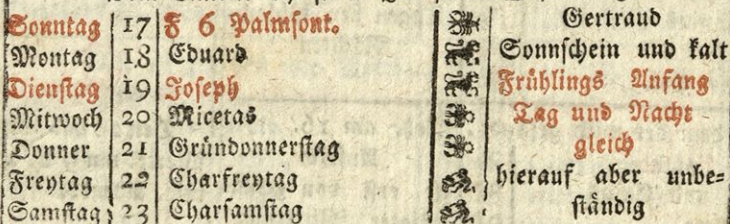 Sonntag 17 F 6 Palmsont. Gertraud
Montag 18 Eduard Sonnschein und kalt
Dienstag 19 Joseph Frühlings Anfang
Mitwoch 20 Nicetas Tag und Nacht
Donner 21 Gründonnerstag gleich
Freytag 22 Charfreytag hierauf aber unbe-
Samstag 23 Charsamstag ständig